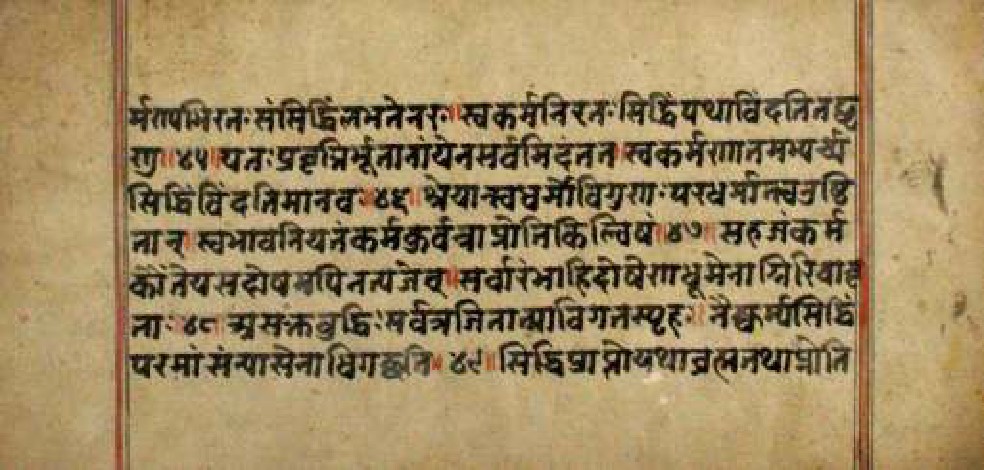 र्मण्यभिरतः संसिद्धिंलभतेनरः॥ स्वकर्मनिरतः सिद्धिंयथाविंदतितछृ
णु॥४५॥यतःप्रवृत्तिर्भूतानांयेनसर्वमिदंततं॥स्वकर्मणातमभ्यर्च्य
सिद्धिंविंदतिमानवः॥४६॥श्रेयान्स्वधर्मोविगुणः परधर्मात्स्वनुष्ठि
तात्॥स्वभावनियतंकर्मकुर्वन्नाप्नोतिकिल्विषं॥४७॥ सहजंकर्म
कौंतेयसदोषमपिनत्यजेत्॥सर्वारंभाहिदोषेणधूमेनाग्निरिवावृ
ताः॥४८॥असक्तबुद्धिः सर्वत्रजितात्माविगतस्पृहः॥ नैष्कर्म्यसिद्धिं
परमांसंन्यासेनाधिगछति॥४९॥ सिद्धिंप्राप्तोयथाब्रह्मतथाप्नोति